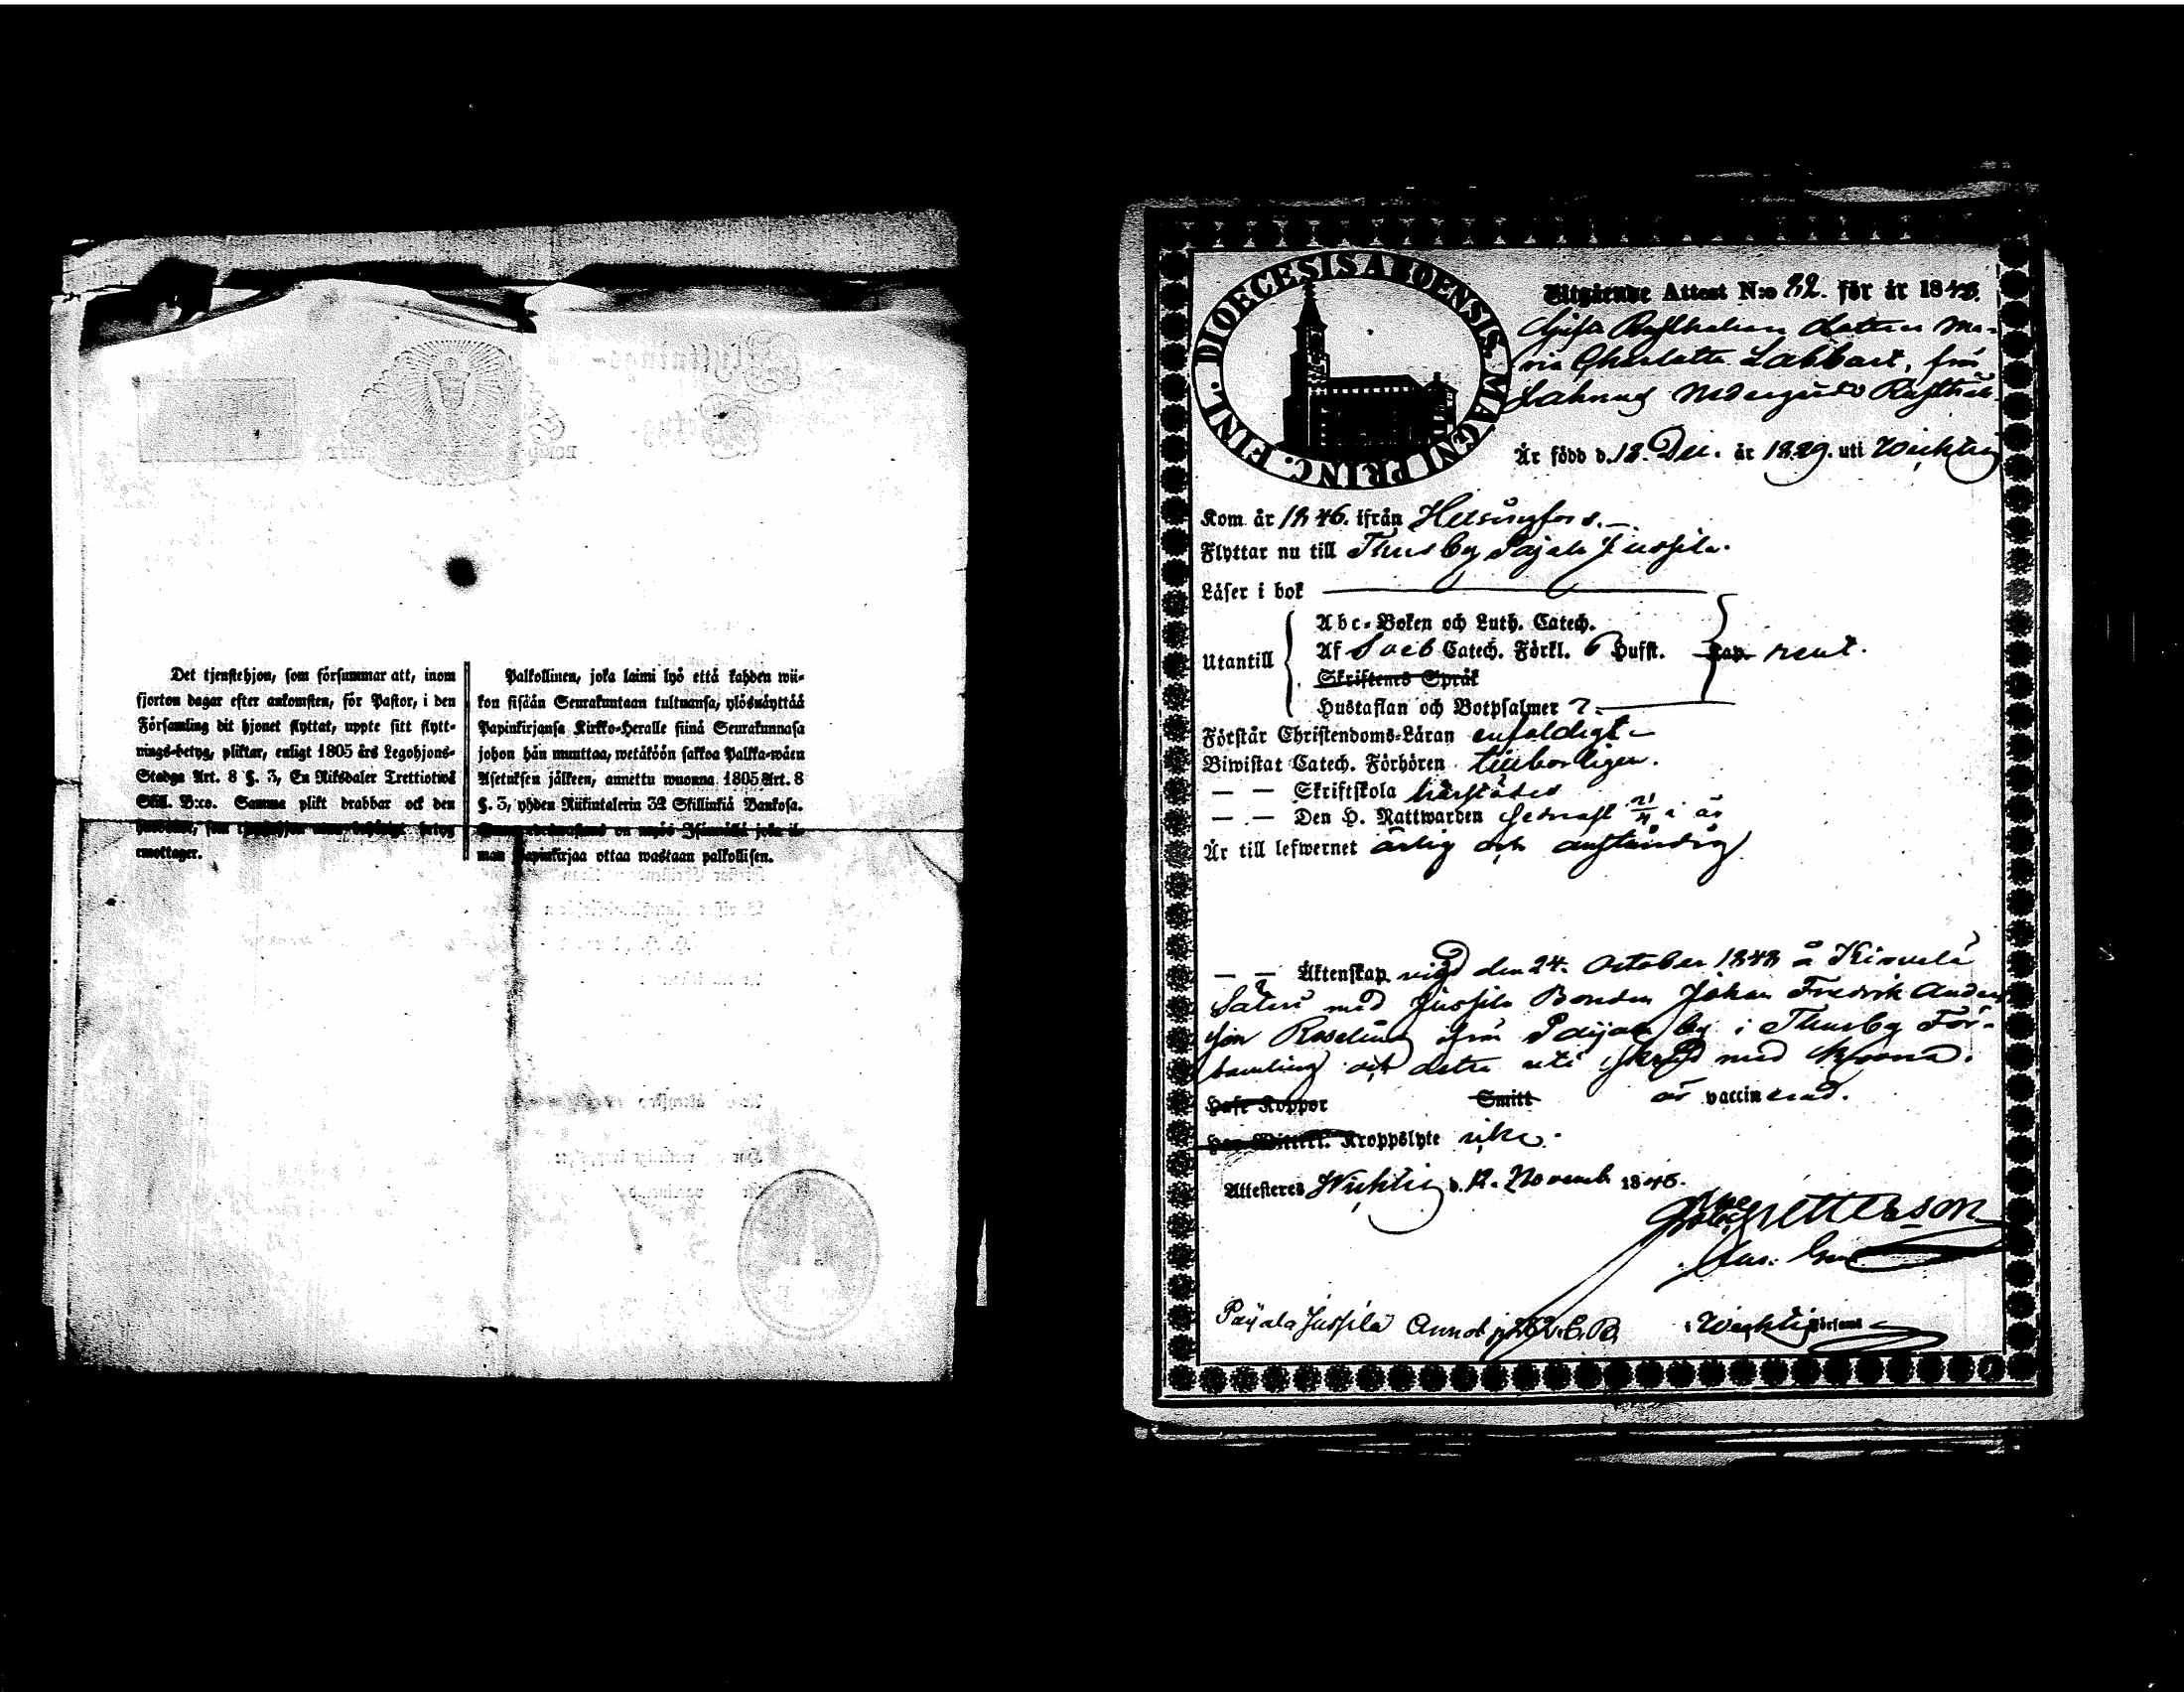 Det tjenstehjon, som försummar att, inom
fjorton dagar efter ankomsten, för Pastor, i den
Församling dit hjonet flyttat, uppte sitt flytt-
nings-betyg, pliktar, enligt 1805 års Legohjons-
Stadga Art. 8 §. 3, En Riksdaler Trettiotwå
Skill. B:co. Samma plikt drabbar ock den
betyg
emottager.
Palkollinen, joka laimi lyö että kahden wii-
kon sisään Seurakuntaan tultuansa, ylösnäyttää
Papinkirjansa Kirkko-Heralle siinä Seurakunnasa
johon hän muuttaa, wetäköön sakkoa Palkka-wäen
Asetuksen jälkeen, annettu wuonna 1805 Art. 8
§. 3, yhden Riikintalerin 32 Skillinkiä Bankosa.
on myös Isännällä joka il-
man papinkirjaa ottaa wastaan palkollisen.
DIOECESIS ABOENSIS. MAGNI PRINC. FINL.
Utgårende Attest N:o 82. för år 1848.
Dottren Ma-
ria Charlotta Labbart, från
Lahnus Nedergårds
Är född d. 12. Dec. år 1829. uti Wichtis
Kom år 1846. ifrån Helsingfors.
Flyttar nu till Thusby Pajala Jussila.
Läser i bok
Utantill
Abc-Boken och Luth. Catech.
Af Sveb Catech. Förkl. 6 Hufst. Cap. rent.
Skriftenes Språk
Hustaflan och Botpsalmer 7.
Förstår Christendoms-Läran enfaldigt
Biwistat Catech. Förhören tillbörligen.
— — Skriftskola härstädes
— — Den H. Nattwarden senast i år
Är till lefwernet ärlig och anständig
— — Äktenskap vigd den 24. October 1848 å
Säteri med Jussila Bonden Johan Fredrik Anders-
son Roselund ifrån Paijala by i Thusby För-
samling och detta uti med
Haft Koppor Smitt är vaccinerad.
Kroppslyte utan.
Attesteras Wichtis d. 12. Novemb. 1848.
Petterson
Paijala Jussila Annot. p. 762. C. B. i Wichtis Församl.